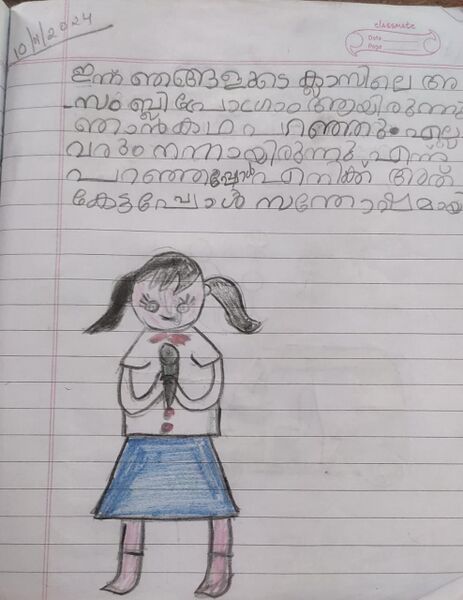 10/11/2024
classmate
Date
Page
ഇന്ന് ഞങ്ങളുടെ ക്ലാസിലെ അ
സംബ്ലി പ്രോഗ്രാം ആയിരുന്നു
ഞാൻ കഥ പറഞ്ഞു. എല്ല
വരും നന്നായിരുന്നു എന്ന്
പറഞ്ഞപ്പോൾ എനിക്ക് അത്
കേട്ടപ്പോൾ സന്തോഷമായി